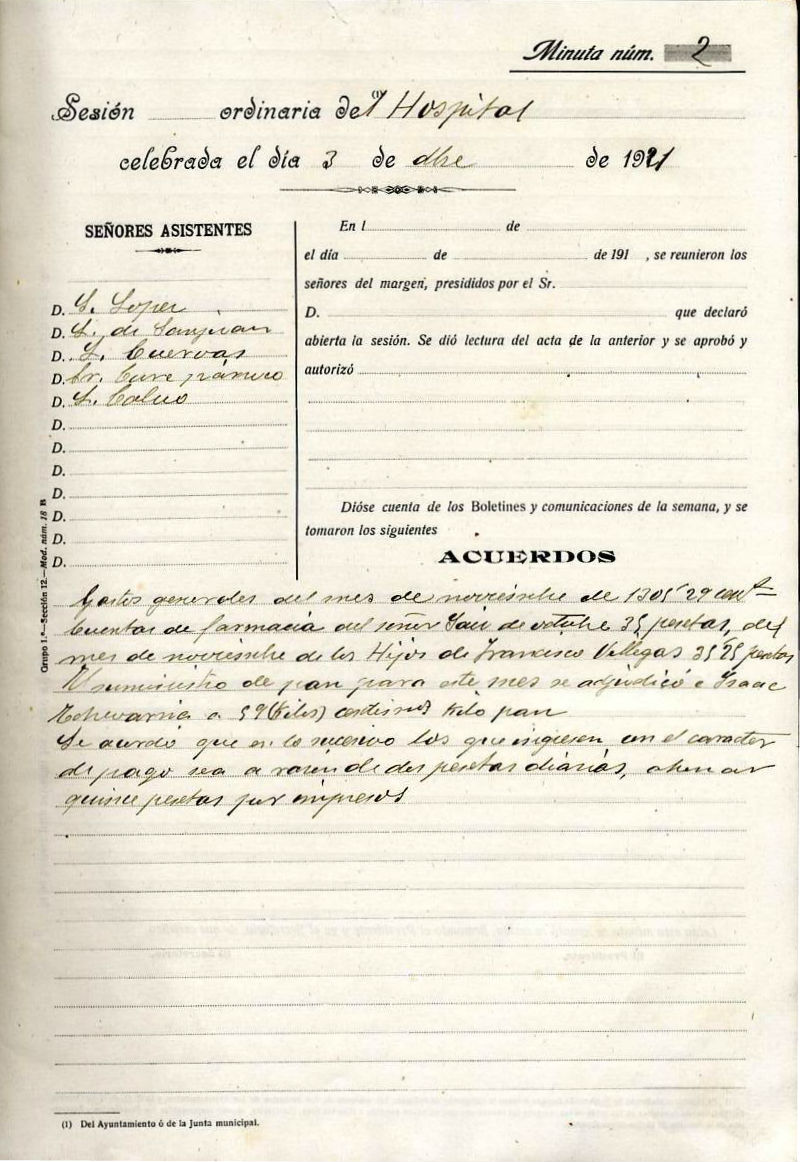 Minuta núm. 2
Sesión ordinaria del (1) Hospital
celebrada el día 3 de dbre de 1921
SEÑORES ASISTENTES
D. S. Lopez
D. S. de Sanjuan
D. S. Cuervas
D. Sr. Cura párroco
D. S. Calvo
D.
D.
D.
D.
D.
D.
D.
En l de
el día de de 191 , se reunieron los
señores del margen, presididos por el Sr.
D. que declaró
abierta la sesión. Se dió lectura del acta de la anterior y se aprobó y
autorizó
Dióse cuenta de los Boletines y comunicaciones de la semana, y se
tomaron los siguientes
ACUERDOS
Gastos generales del mes de noviembre de 1305'29 cent
Cuentas de farmacia del señor de octubre 35 pesetas, del
mes de noviembre de los Hijos de Francisco Villegas 35'25 pesetas
El suministro de pan para este mes se adjudicó a Isaac
Echevarria a 59 (kilos) centimos kilo pan
Se acordó que en lo sucesivo los que ingresen con el caracter
de pago sea a razon de dos pesetas diarias,
quince pesetas por impresos
Grupo 1.º—Sección 12.—Mod. núm. 18 B
(1) Del Ayuntamiento ó de la Junta municipal.